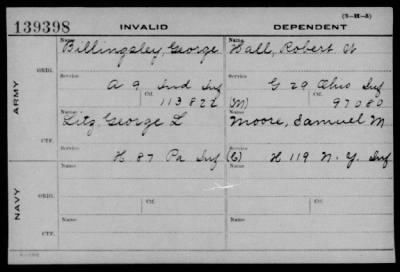 (3-H-3)
139398 INVALID DEPENDENT
Name Name
Billingsley, George Hall, Robert W
ORIG. Service Ctf. Service Ctf.
A 9 Ind Inf G 29 Ohio Inf
113822 (M) 97080
ARMY
Name Name
Litz George L Moore, Samuel M
CTF. Service Service
H 87 Pa Inf (C) H 119 N.Y. Inf
Name Name
NAVY
ORIG. Ctf. Ctf.
Name Name
CTF.